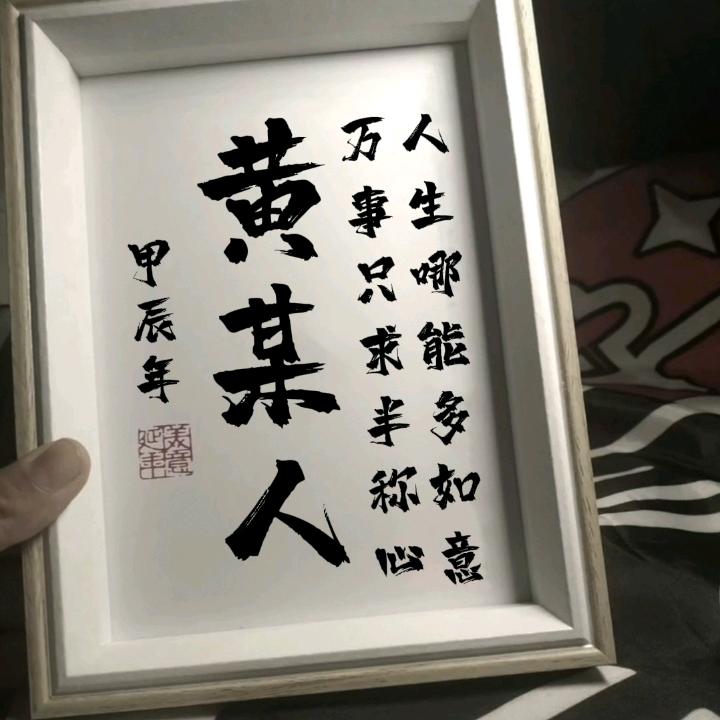 人生哪能多如意
万事只求半称心
黄某人
甲辰年
美意延年